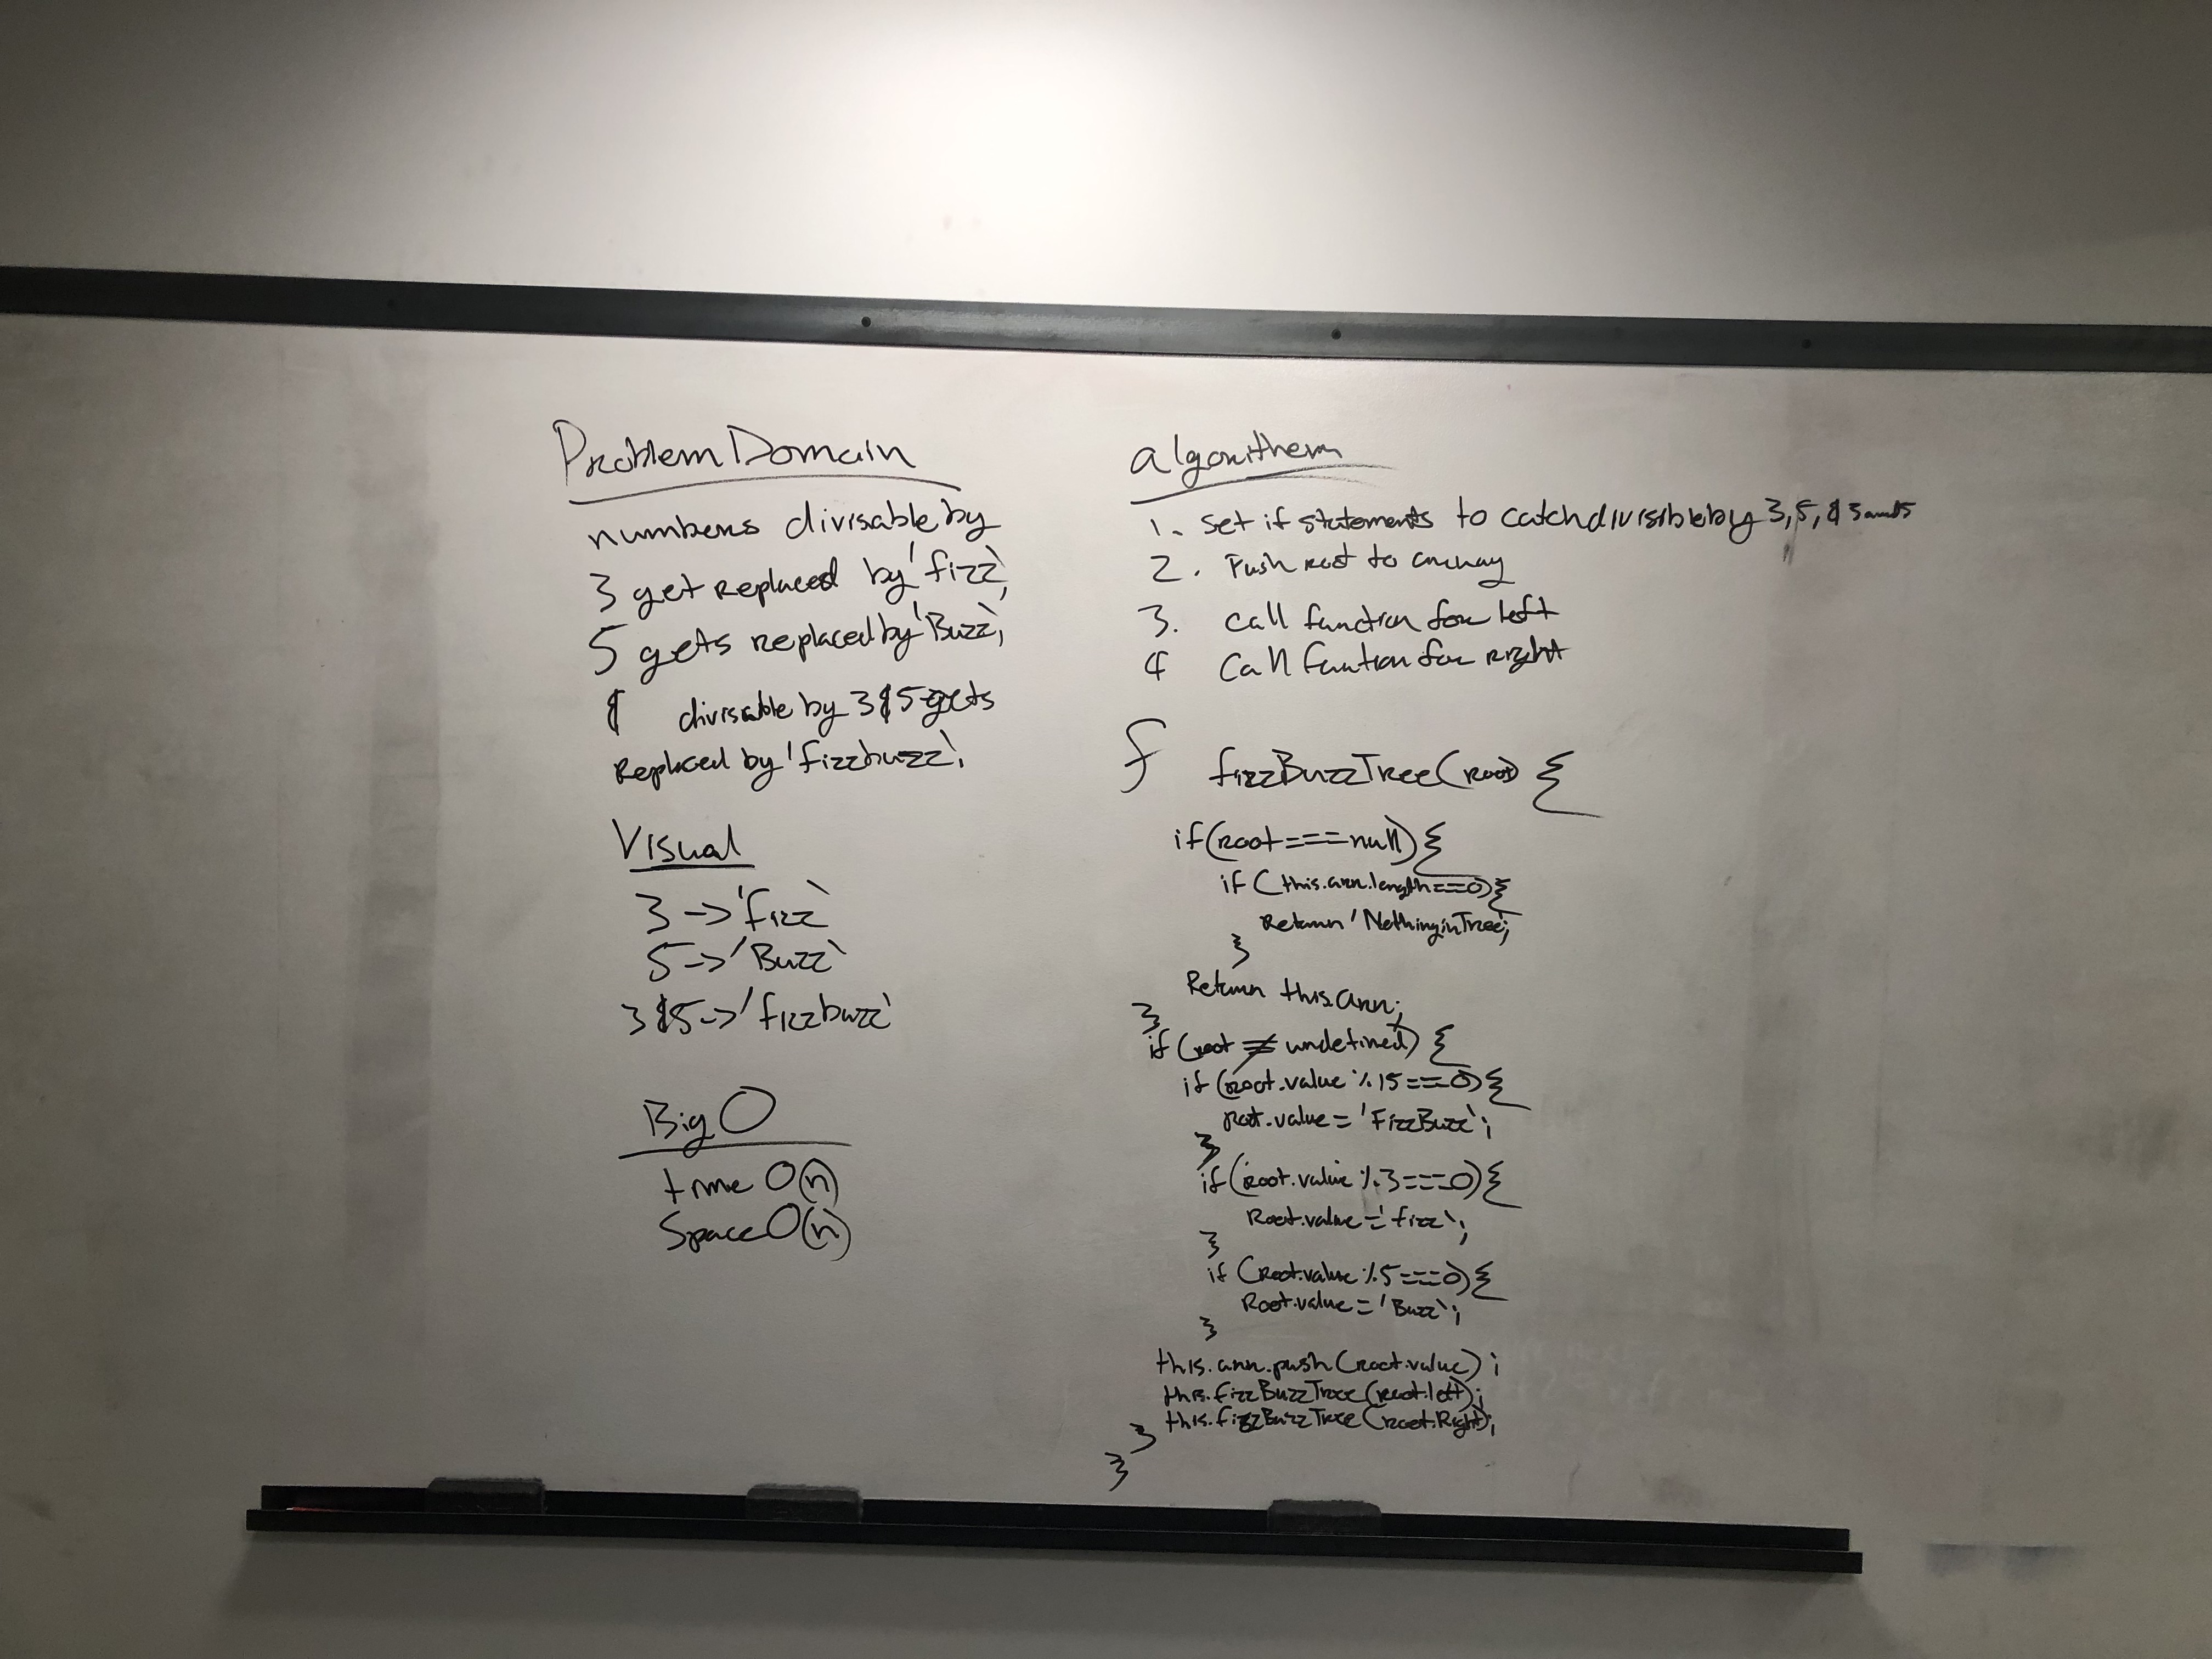 Problem Domain
numbers divisable by
3 get replaced by 'fizz',
5 gets replaced by 'Buzz',
& divisable by 3&5 gets
Replaced by 'fizzbuzz'.
Visual
3 -> 'fizz'
5 -> 'Buzz'
3&5 -> 'fizzbuzz'
Big O
time O(n)
Space O(n)
algorithem
1. Set if statements to catch divisible by 3, 5, & 3 and 5
2. Push root to array
3. Call function for left
4 Call funtion for right
f fizzBuzzTree(root) {
if(root===null){
if (this.arr.length===0){
Return 'Nothing in Tree';
}
Return this.arr;
}
if (root ≠ undefined) {
if (root.value % 15 === 0){
root.value = 'FizzBuzz';
}
if (root.value % 3 === 0){
Root.value = 'fizz';
}
if (Root.value % 5 === 0){
Root.value = 'Buzz';
}
this.arr.push(root.value);
this.fizzBuzzTree(root.left);
this.fizzBuzzTree(root.Right);
}
}